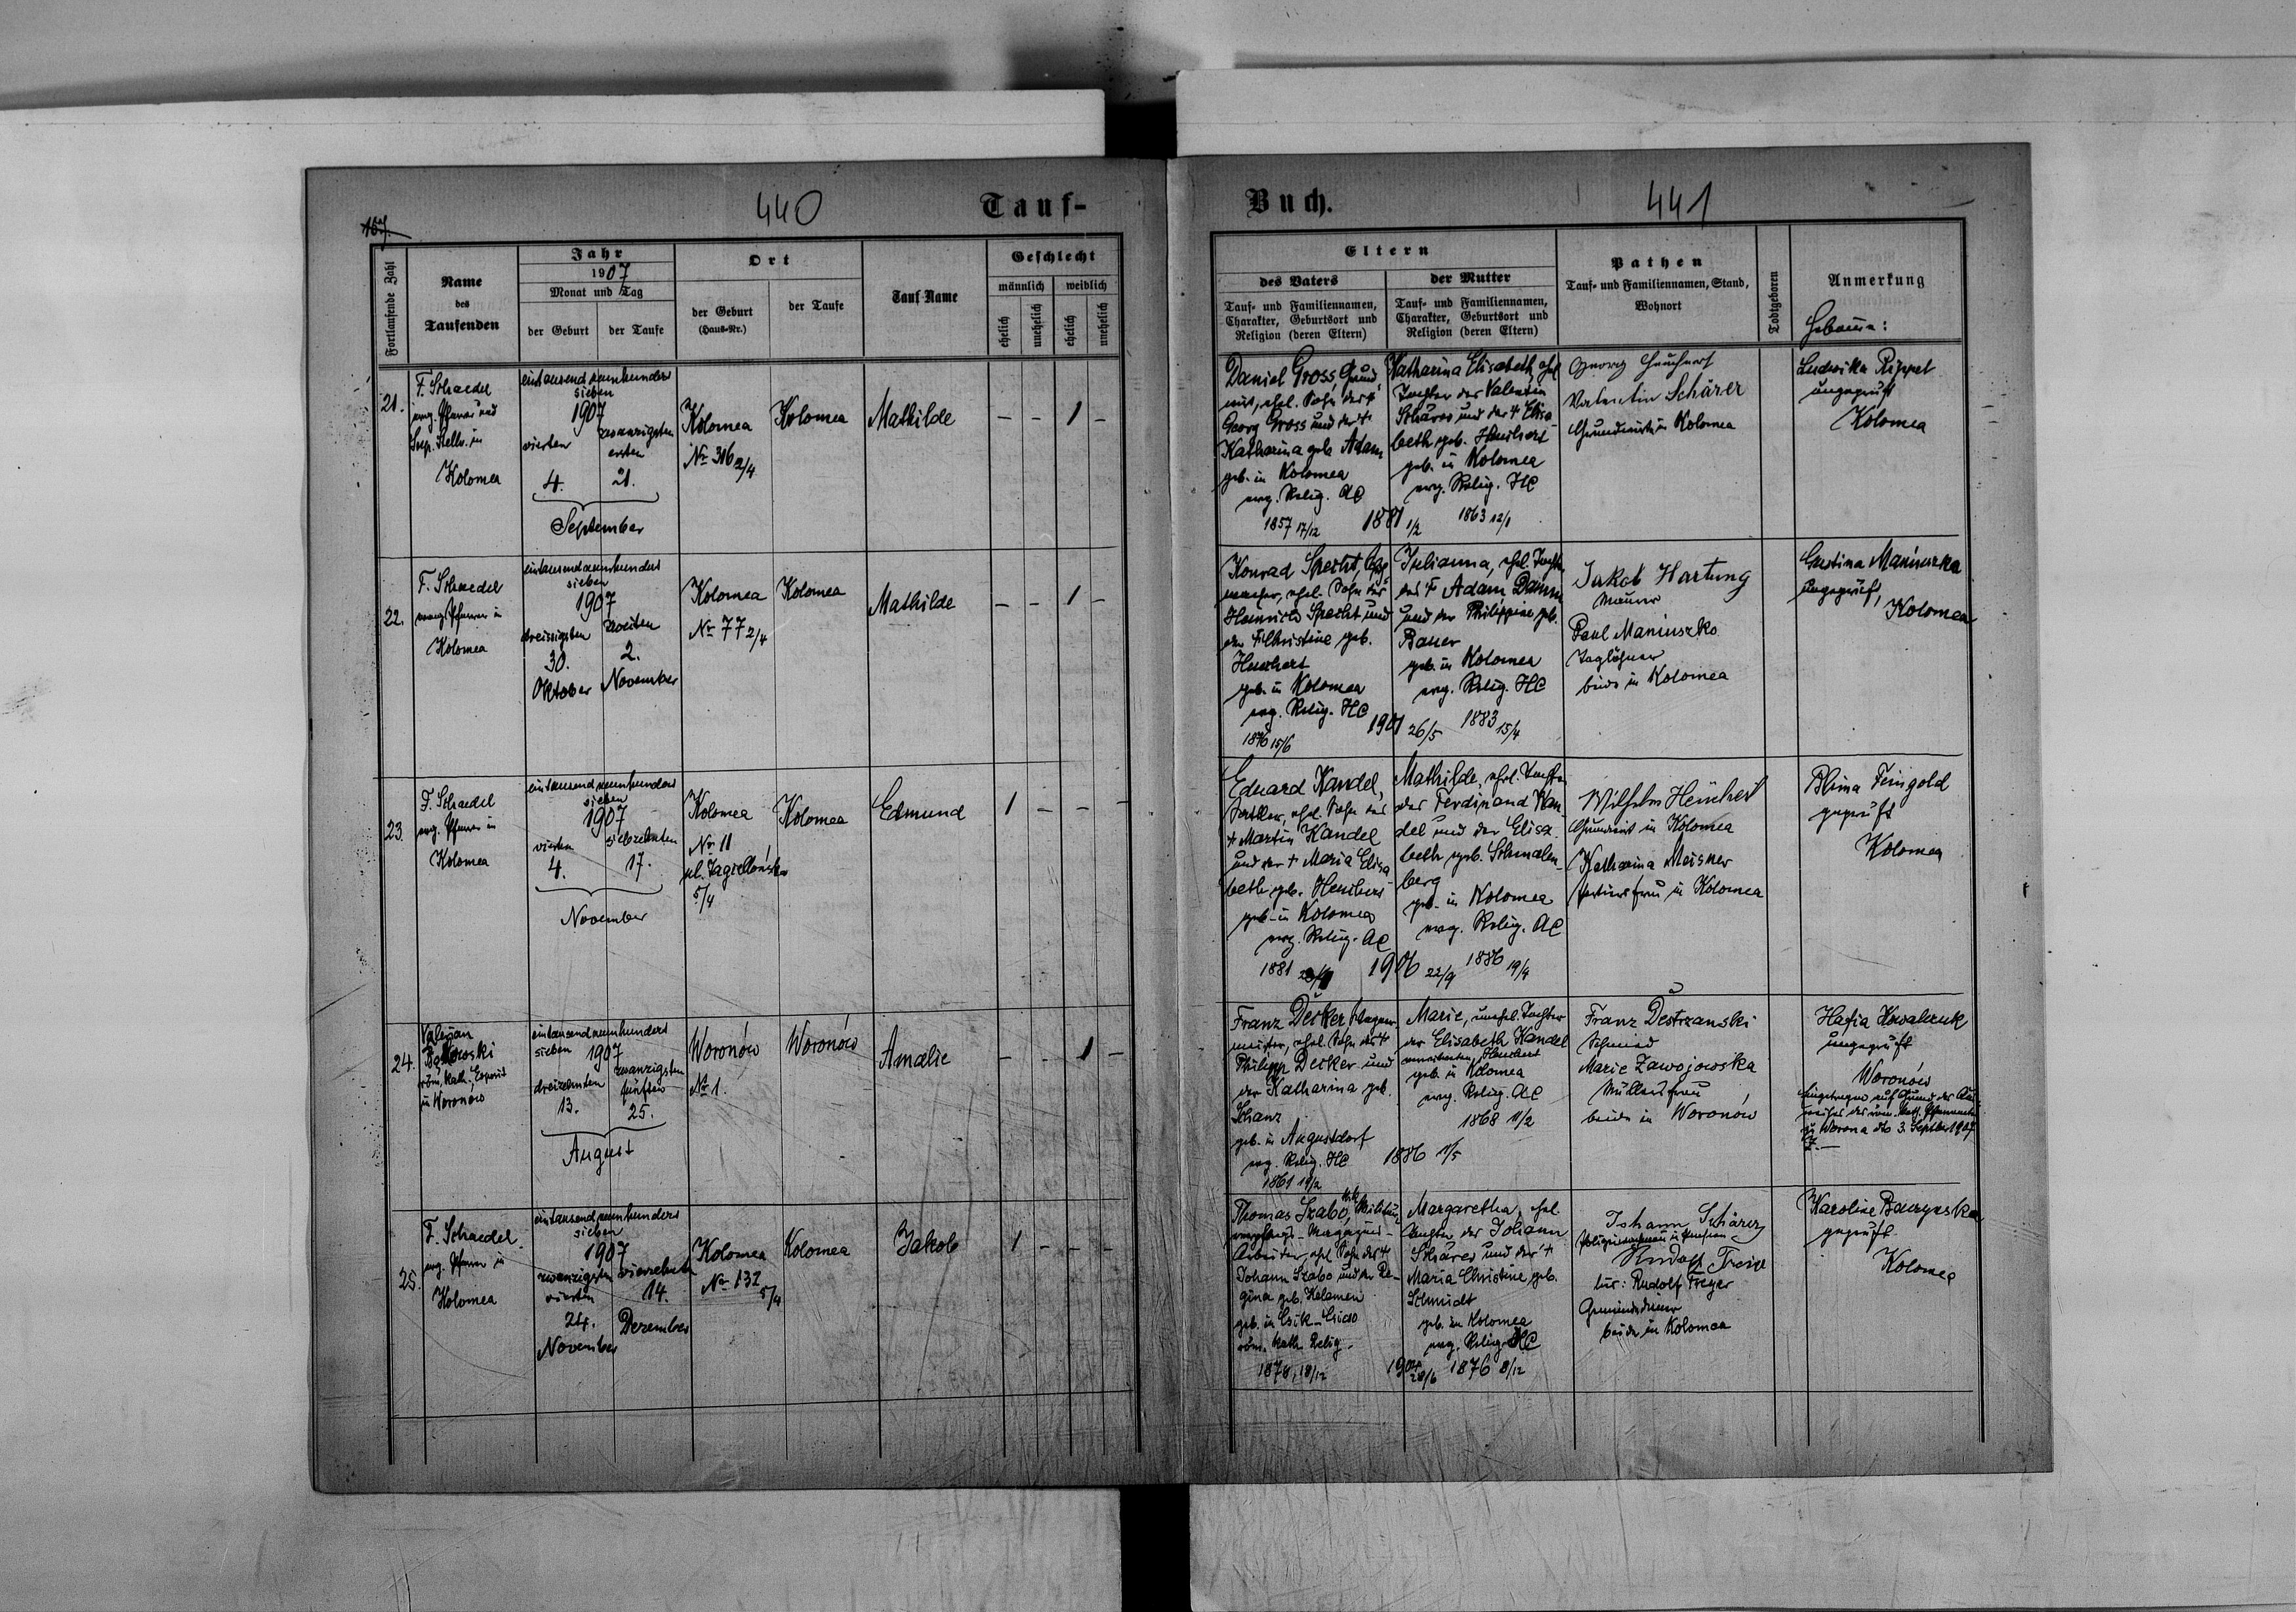 167.
440
Tauf-
Fortlaufende Zahl
Name
des
Taufenden
Jahr
1907
Monat und Tag
der Geburt
der Taufe
Ort
der Geburt
(Haus-Nr.)
der Taufe
Tauf-Name
Geschlecht
männlich
weiblich
ehelich
unehelich
ehelich
unehelich
21.
F. Schaedel
evg. Pfarrer und
Sup. Stellv. in
Kolomea
eintausendneunhundert
sieben
1907
vierten
4.
zwanzigsten
ersten
21.
September
Kolomea
Nr 316 2/4
Kolomea
Mathilde
– – 1 –
22.
F. Schaedel
evang. Pfarrer in
Kolomea
eintausendneunhundert
sieben
1907
dreissigsten
30.
Oktober
zweiten
2.
November
Kolomea
Nr 77 2/4
Kolomea
Mathilde
– – 1 –
23.
F. Schaedel
evg. Pfarrer in
Kolomea
eintausendneunhundert
sieben
1907
vierten
4.
siebzehnten
17.
November
Kolomea
Nr 11
ul. Jagiellońska
5/4
Kolomea
Edmund
1 – – –
24.
Valerian
röm. kath. Exposit
in Woronów
eintausendneunhundert
sieben 1907
dreizehnten
13.
zwanzigsten
fünften
25.
August
Woronów
Nr 1.
Woronów
Amalie
– – 1 –
25.
F. Schaedel
evg. Pfarrer in
Kolomea
eintausendneunhundert
sieben
1907
zwanzigsten
vierten
24.
November
vierzehnten
14.
Dezember
Kolomea
Nr 132
5/4
Kolomea
Jakob
1 – – –
Buch.
441
Eltern
des Vaters
Tauf- und Familiennamen,
Charakter, Geburtsort und
Religion (deren Eltern)
der Mutter
Tauf- und Familiennamen,
Charakter, Geburtsort und
Religion (deren Eltern)
Pathen
Tauf- und Familiennamen, Stand,
Wohnort
Todtgeboren
Anmerkung
Hebamme:
Daniel Gross, Grund
wirt, ehel. Sohn des †
Georg Gross und der †
Katharina geb. Adam
geb. in Kolomea
evg. Relig. AC
1857 17/12
1881 1/2
Katharina Elisabeth ehel
Tochter des Valentin
Schärer und der † Elisa-
beth geb. Heuchert
geb. in Kolomea
evg. Relig. HC
1863 12/1
Georg Heuchert
Valentin Schärer
Grundwirte in Kolomea
Ludwika Rippel
ungeprüft
Kolomea
Konrad Specht,
ehel. Sohn des
Heinrich Specht und
der † Christine geb.
Heuchert
geb. in Kolomea
evg. Relig. HC
1876 15/6
1901 26/5
Julianna, ehel. Tochter
des † Adam Damm
und der Philippine geb.
Bauer
geb. in Kolomea
evg. Relig. HC
1883 15/4
Jakob Hartung
Maurer
Paul Maniuszko
Taglöhner
beide in Kolomea
Justina Maniuszka
ungeprüft,
Kolomea
Eduard Kandel,
Sattler, ehel. Sohn des
† Martin Kandel
und der † Maria Elisa-
beth geb. Heuchert
geb. in Kolomea
evg. Relig. AC
1881
1906 22/9
Mathilde, ehel. Tochter
des Ferdinand Kan-
del und der Elisa-
beth geb. Schmalen-
berg
geb. in Kolomea
evg. Relig. AC
1886 19/4
Wilhelm Heuchert
Grundwirt in Kolomea
Katharina Meisner
in Kolomea
Blima Feingold
geprüft
Kolomea
Franz Decker, Wagner-
meister, ehel. Sohn des †
Philipp Decker und
der Katharina geb.
Schanz
geb. in Augustdorf
evg. Relig. HC
1861 19/2
1886 11/5
Marie, unehel. Tochter
der Elisabeth Kandel
verwitweten Heuchert
geb. in Kolomea
evg. Relig. AC
1868 11/2
Franz Destrzanski
Schmied
Marie Zawojowska
Müllersfrau
beide in Woronów
Hafia Kowalczuk
ungeprüft
Woronów
Eingetragen auf Grund des Aus-
weises des röm. kath. Pfarramtes
zu Worona dto 3. Septber 1907
Thomas Szabo, Militär-
verpflegs-Magazins-
Arbeiter, ehel. Sohn des †
Johann Szabo und der Re-
gina geb. Kelemen
geb. in Csik-
röm. kath. Relig.
1878, 18/12
1904 28/6
Margaretha, ehel.
Tochter des Johann
Schärer und der †
Maria Christine geb.
Schmidt
geb. in Kolomea
evg. Relig. HC
1876 8/12
Johann Schärer
in Pension
Rudolf Freier
lur: Rudolf Freyer
Gemeindediener
beide in Kolomea
Karoline
geprüft
Kolomea